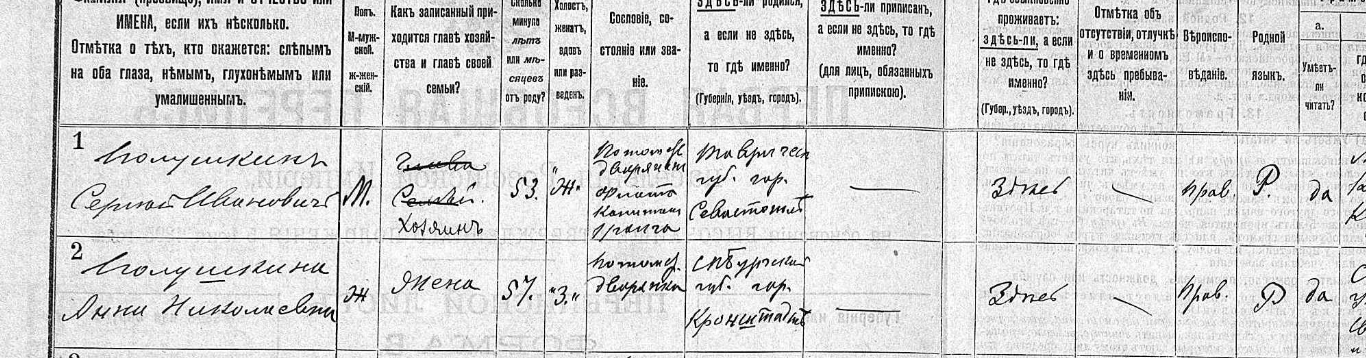 ИМЕНА, если ихъ нѣсколько.
Отмѣтка о тѣхъ, кто окажется: слѣпымъ
на оба глаза, нѣмымъ, глухонѣмымъ или
умалишеннымъ.
Полъ.
М-муж-
ской.
Ж-жен-
скій.
Какъ записанный при-
ходится главѣ хозяй-
ства и главѣ своей
семьи?
минуло
лѣтъ
или мѣ-
сяцевъ
отъ роду?
Холостъ,
женатъ,
вдовъ
или раз-
веденъ.
Сословіе, со-
стояніе или зва-
ніе.
ЗДѢСЬ-ли родился,
а если не здѣсь,
то гдѣ именно?
(Губернія, уѣздъ, городъ).
ЗДѢСЬ-ли приписанъ,
а если не здѣсь, то гдѣ
именно?
(для лицъ, обязанныхъ
припискою).
проживаетъ:
здѣсь-ли, а если
не здѣсь, то гдѣ
именно?
(Губер., уѣздъ, городъ).
Отмѣтка объ
отсутствіи, отлучкѣ
и о временномъ
здѣсь пребыва-
ніи.
Вѣроиспо-
вѣданіе.
Родной
языкъ.
а.
Умѣетъ-
ли
читать?
1
Сергѣй Ивановичъ
М.
Глава
Семьи.
Хозяинъ
53.
"Ж"
Потом.
дворянин
флота
Капитан
ранга
Таврическ
губ. гор.
Севастополь
Здѣсь
Прав.
Р.
да
2
Анна Николаевна
Ж
Жена
57.
"З."
Потом.
дворянка
СПБургской
губ. гор.
Кронштадтъ
Здѣсь
Прав.
Р
да